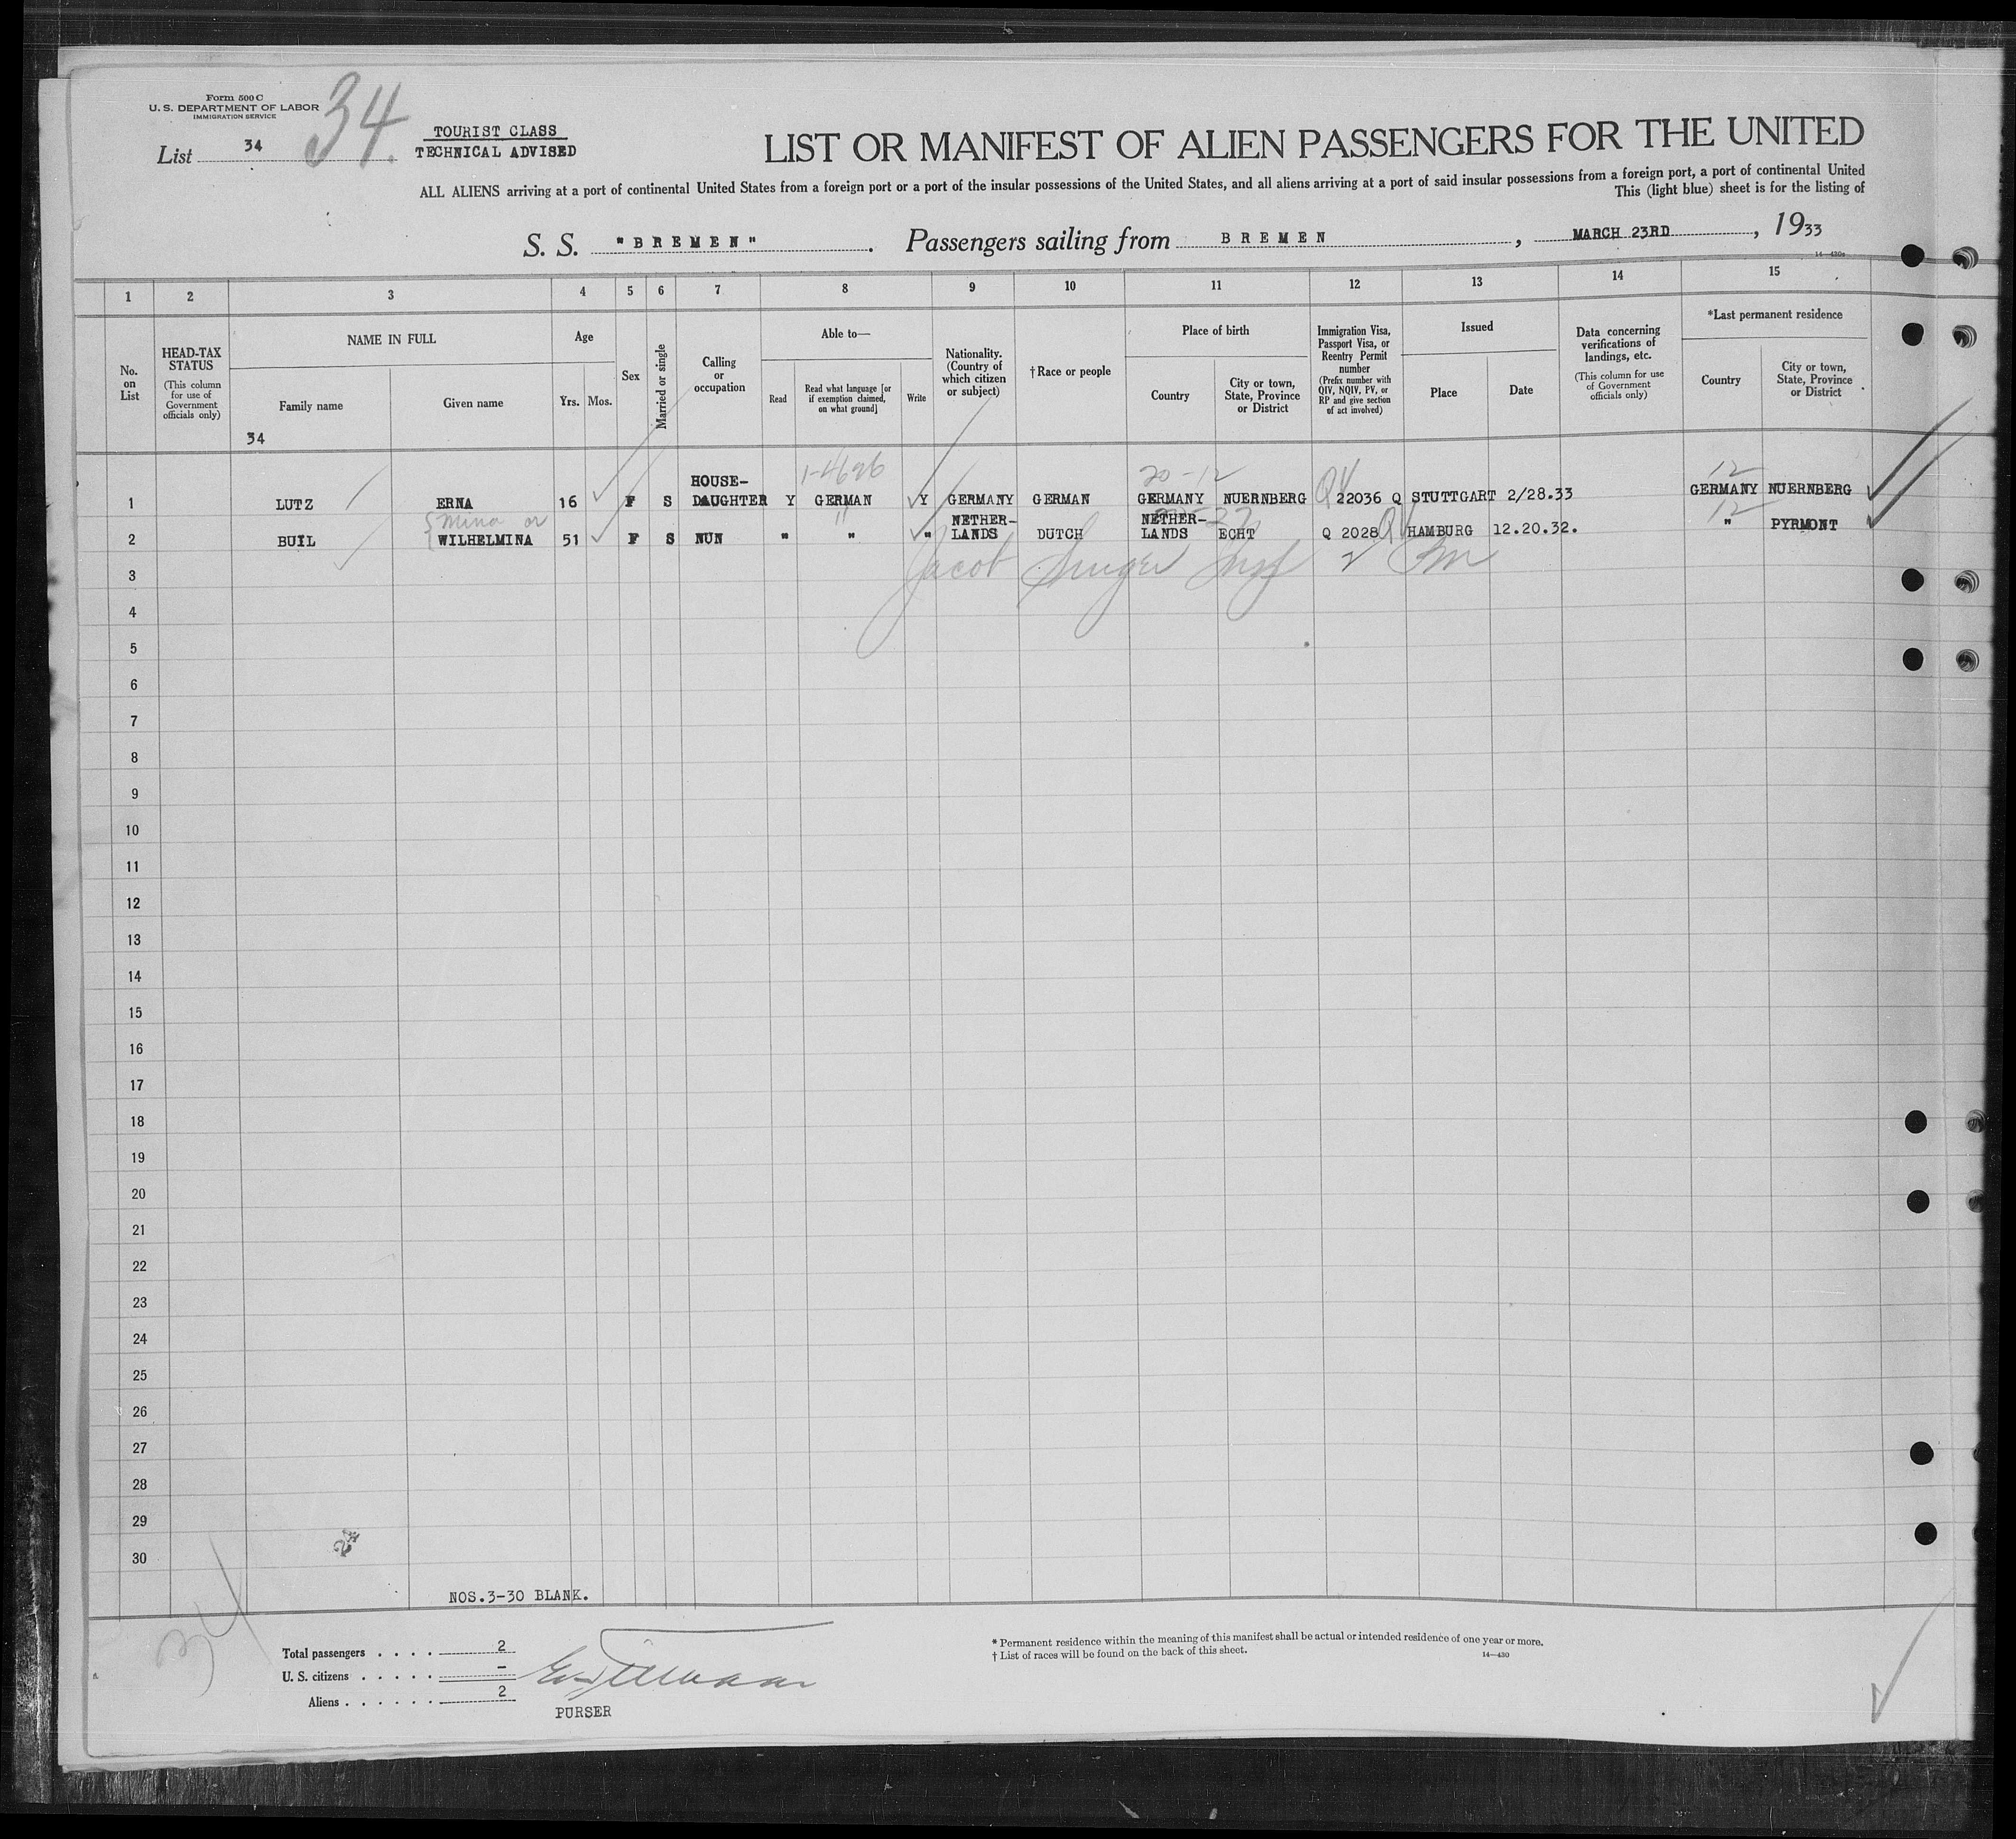 Form 500 C
U. S. DEPARTMENT OF LABOR
IMMIGRATION SERVICE
34.
List 34
TOURIST CLASS
TECHNICAL ADVISED
LIST OR MANIFEST OF ALIEN PASSENGERS FOR THE UNITED
ALL ALIENS arriving at a port of continental United States from a foreign port or a port of the insular possessions of the United States, and all aliens arriving at a port of said insular possessions from a foreign port, a port of continental United
This (light blue) sheet is for the listing of
S. S. "BREMEN". Passengers sailing from BREMEN, MARCH 23RD, 1933
1 2 3 4 5 6 7 8 9 10 11 12 13 14 15
No. on List
HEAD-TAX STATUS
(This column for use of Government officials only)
NAME IN FULL
Family name
Given name
Age
Yrs. Mos.
Sex
Married or single
Calling or occupation
Able to—
Read
Read what language [or if exemption claimed, on what ground]
Write
Nationality. (Country of which citizen or subject)
† Race or people
Place of birth
Country
City or town, State, Province or District
Immigration Visa, Passport Visa, or Reentry Permit number
(Prefix number with QIV, NQIV, PV, or RP and give section of act involved)
Issued
Place
Date
Data concerning verifications of landings, etc.
(This column for use of Government officials only)
*Last permanent residence
Country
City or town, State, Province or District
34
1-4626 20-12 QV 12
1 LUTZ ERNA 16 F S HOUSE-DAUGHTER Y GERMAN Y GERMANY GERMAN GERMANY NUERNBERG 22036 Q STUTTGART 2/28.33 GERMANY NUERNBERG
Mina or 12
2 BUIL WILHELMINA 51 F S NUN " " " NETHER-LANDS DUTCH NETHER-LANDS ECHT Q 2028 QV HAMBURG 12.20.32. " PYRMONT
Jacob Singer Insp
3
4
5
6
7
8
9
10
11
12
13
14
15
16
17
18
19
20
21
22
23
24
25
26
27
28
29
30
NOS.3-30 BLANK.
34
Total passengers . . . . 2
U. S. citizens . . . . . –
Aliens . . . . . . 2
PURSER
* Permanent residence within the meaning of this manifest shall be actual or intended residence of one year or more.
† List of races will be found on the back of this sheet.
14—430